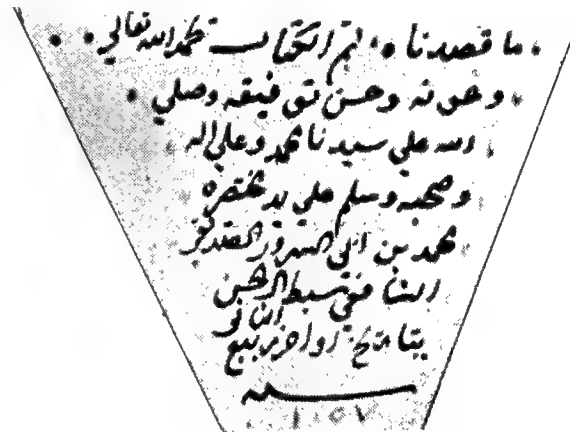 ما قصدنا • • تم الكتاب بحمد الله تعالى
وعونه وحسن توفيقه وصلى
الله على سيدنا محمد وعلى اله
وصحبه وسلم على يد مختصره
محمد بن ابى السرور الصديقى
الشافعى سبط ال الحسن
بتاريخ اواخر ربيع الثانى
سنه
١٠٥٧